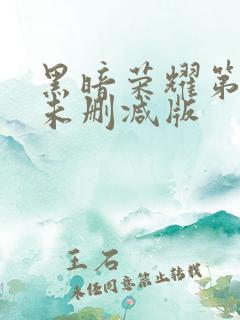 黑暗荣耀第
未删减版
王石
未经同意禁止转载